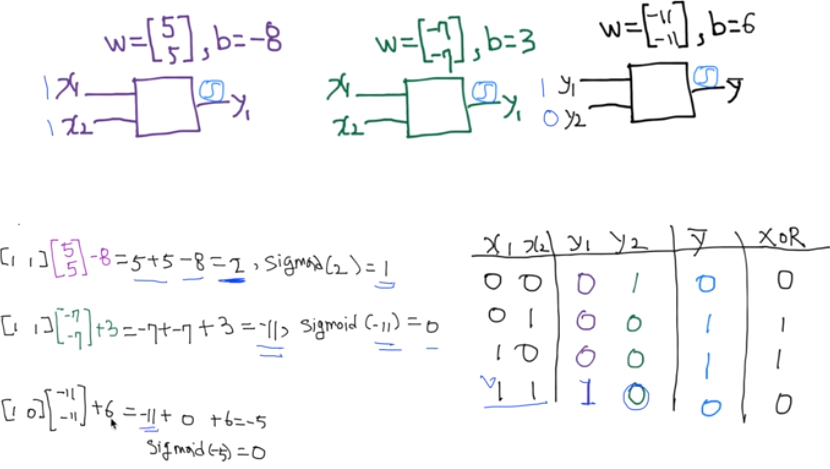 w=[5 5], b=-8
w=[-7 -7], b=3
w=[-11 -11], b=6
1 x1
1 x2
S y1
x1
x2
S y1
1 y1
0 y2
S ȳ
[1 1][5 5]-8=5+5-8=2, sigmoid(2)=1
[1 1][-7 -7]+3=-7+-7+3=-11, sigmoid(-11)=0
[1 0][-11 -11]+6=-11+0+6=-5
sigmoid(-5)=0
x1 x2 y1 y2 ȳ XOR
0 0 0 1 0 0
0 1 0 0 1 1
1 0 0 0 1 1
1 1 1 0 0 0